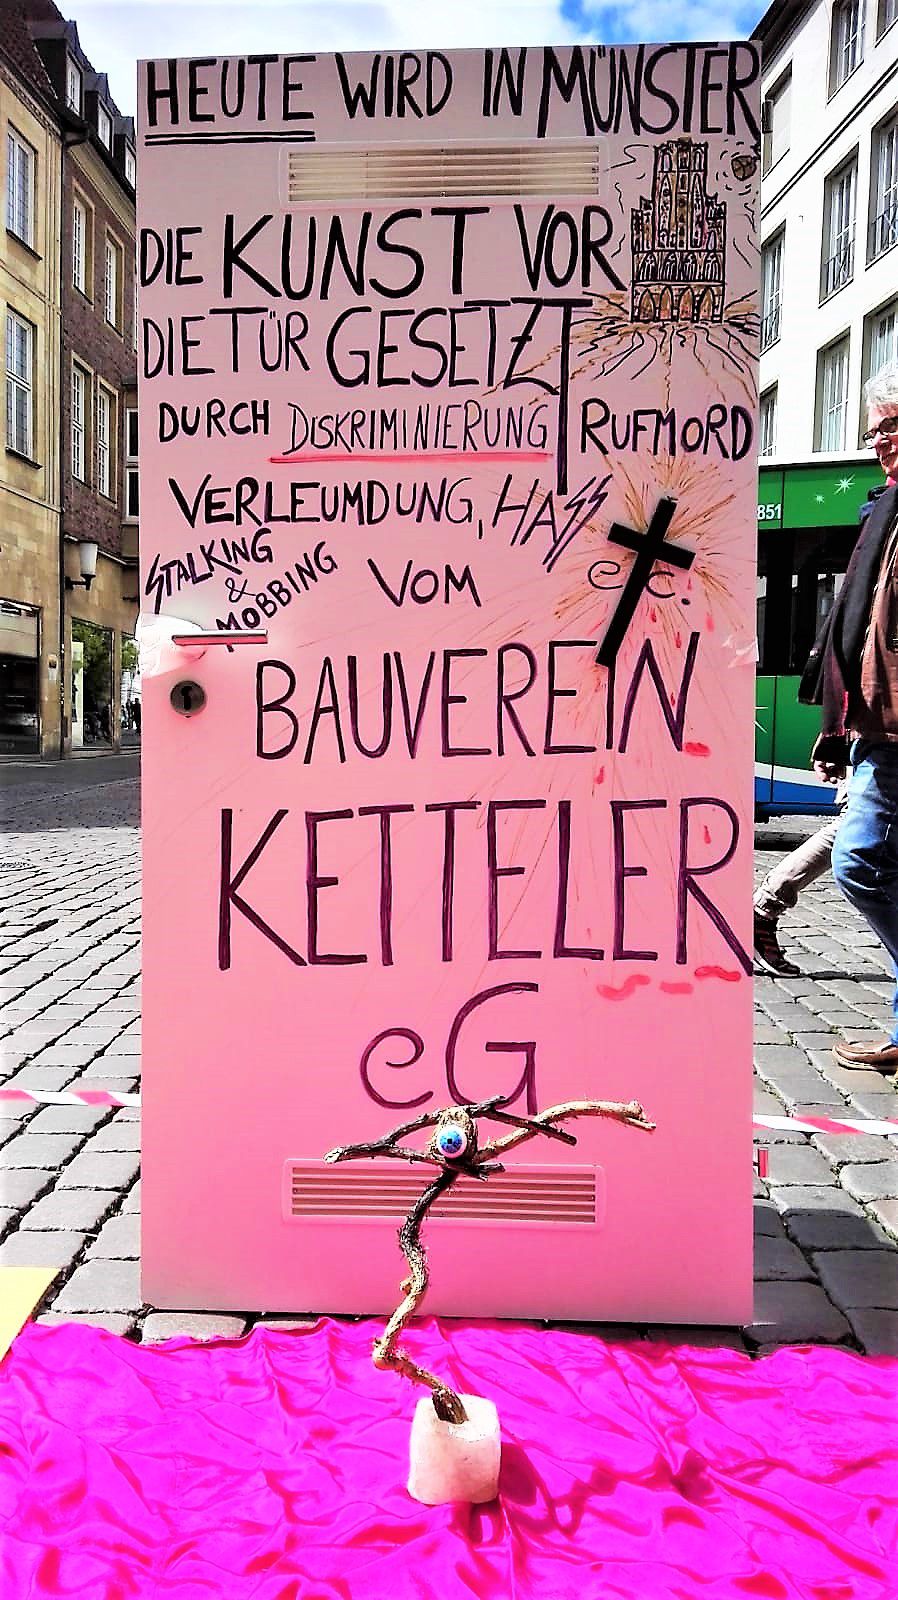 HEUTE WIRD IN MÜNSTER
DIE KUNST VOR
DIE TÜR GESETZT
DURCH DISKRIMINIERUNG RUFMORD
VERLEUMDUNG, HASS
STALKING
&
MOBBING
VOM
etc.
BAUVEREIN
KETTELER
eG
851
H